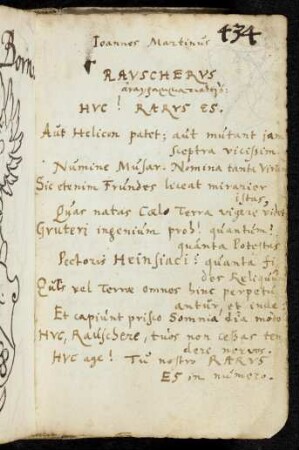 Born.
434
Ioannes Martinus
RAUSCHERUS
HUC! RARUS ES.
Aut Helicon patet; aut mutant jam
sceptra vicissim
Numine Musar. Nomina tanta Virum
Sic etenim Frundes liceat mirarier
istas,
Quas natas Coelo Terra
Gruteri ingenium proh! quantum!
quanta Potestas
Pectoris Heinsiaci! quanta fi-
des Reliquum
Queis vel Terrae omnes hinc perpetu
antur, et inde:
Et capiunt prisco Somnia dia modo
HUC, Rauschere, tuos non cessas ten
dere nervos.
HUC age! Tu nostro RARUS
ES in numero.